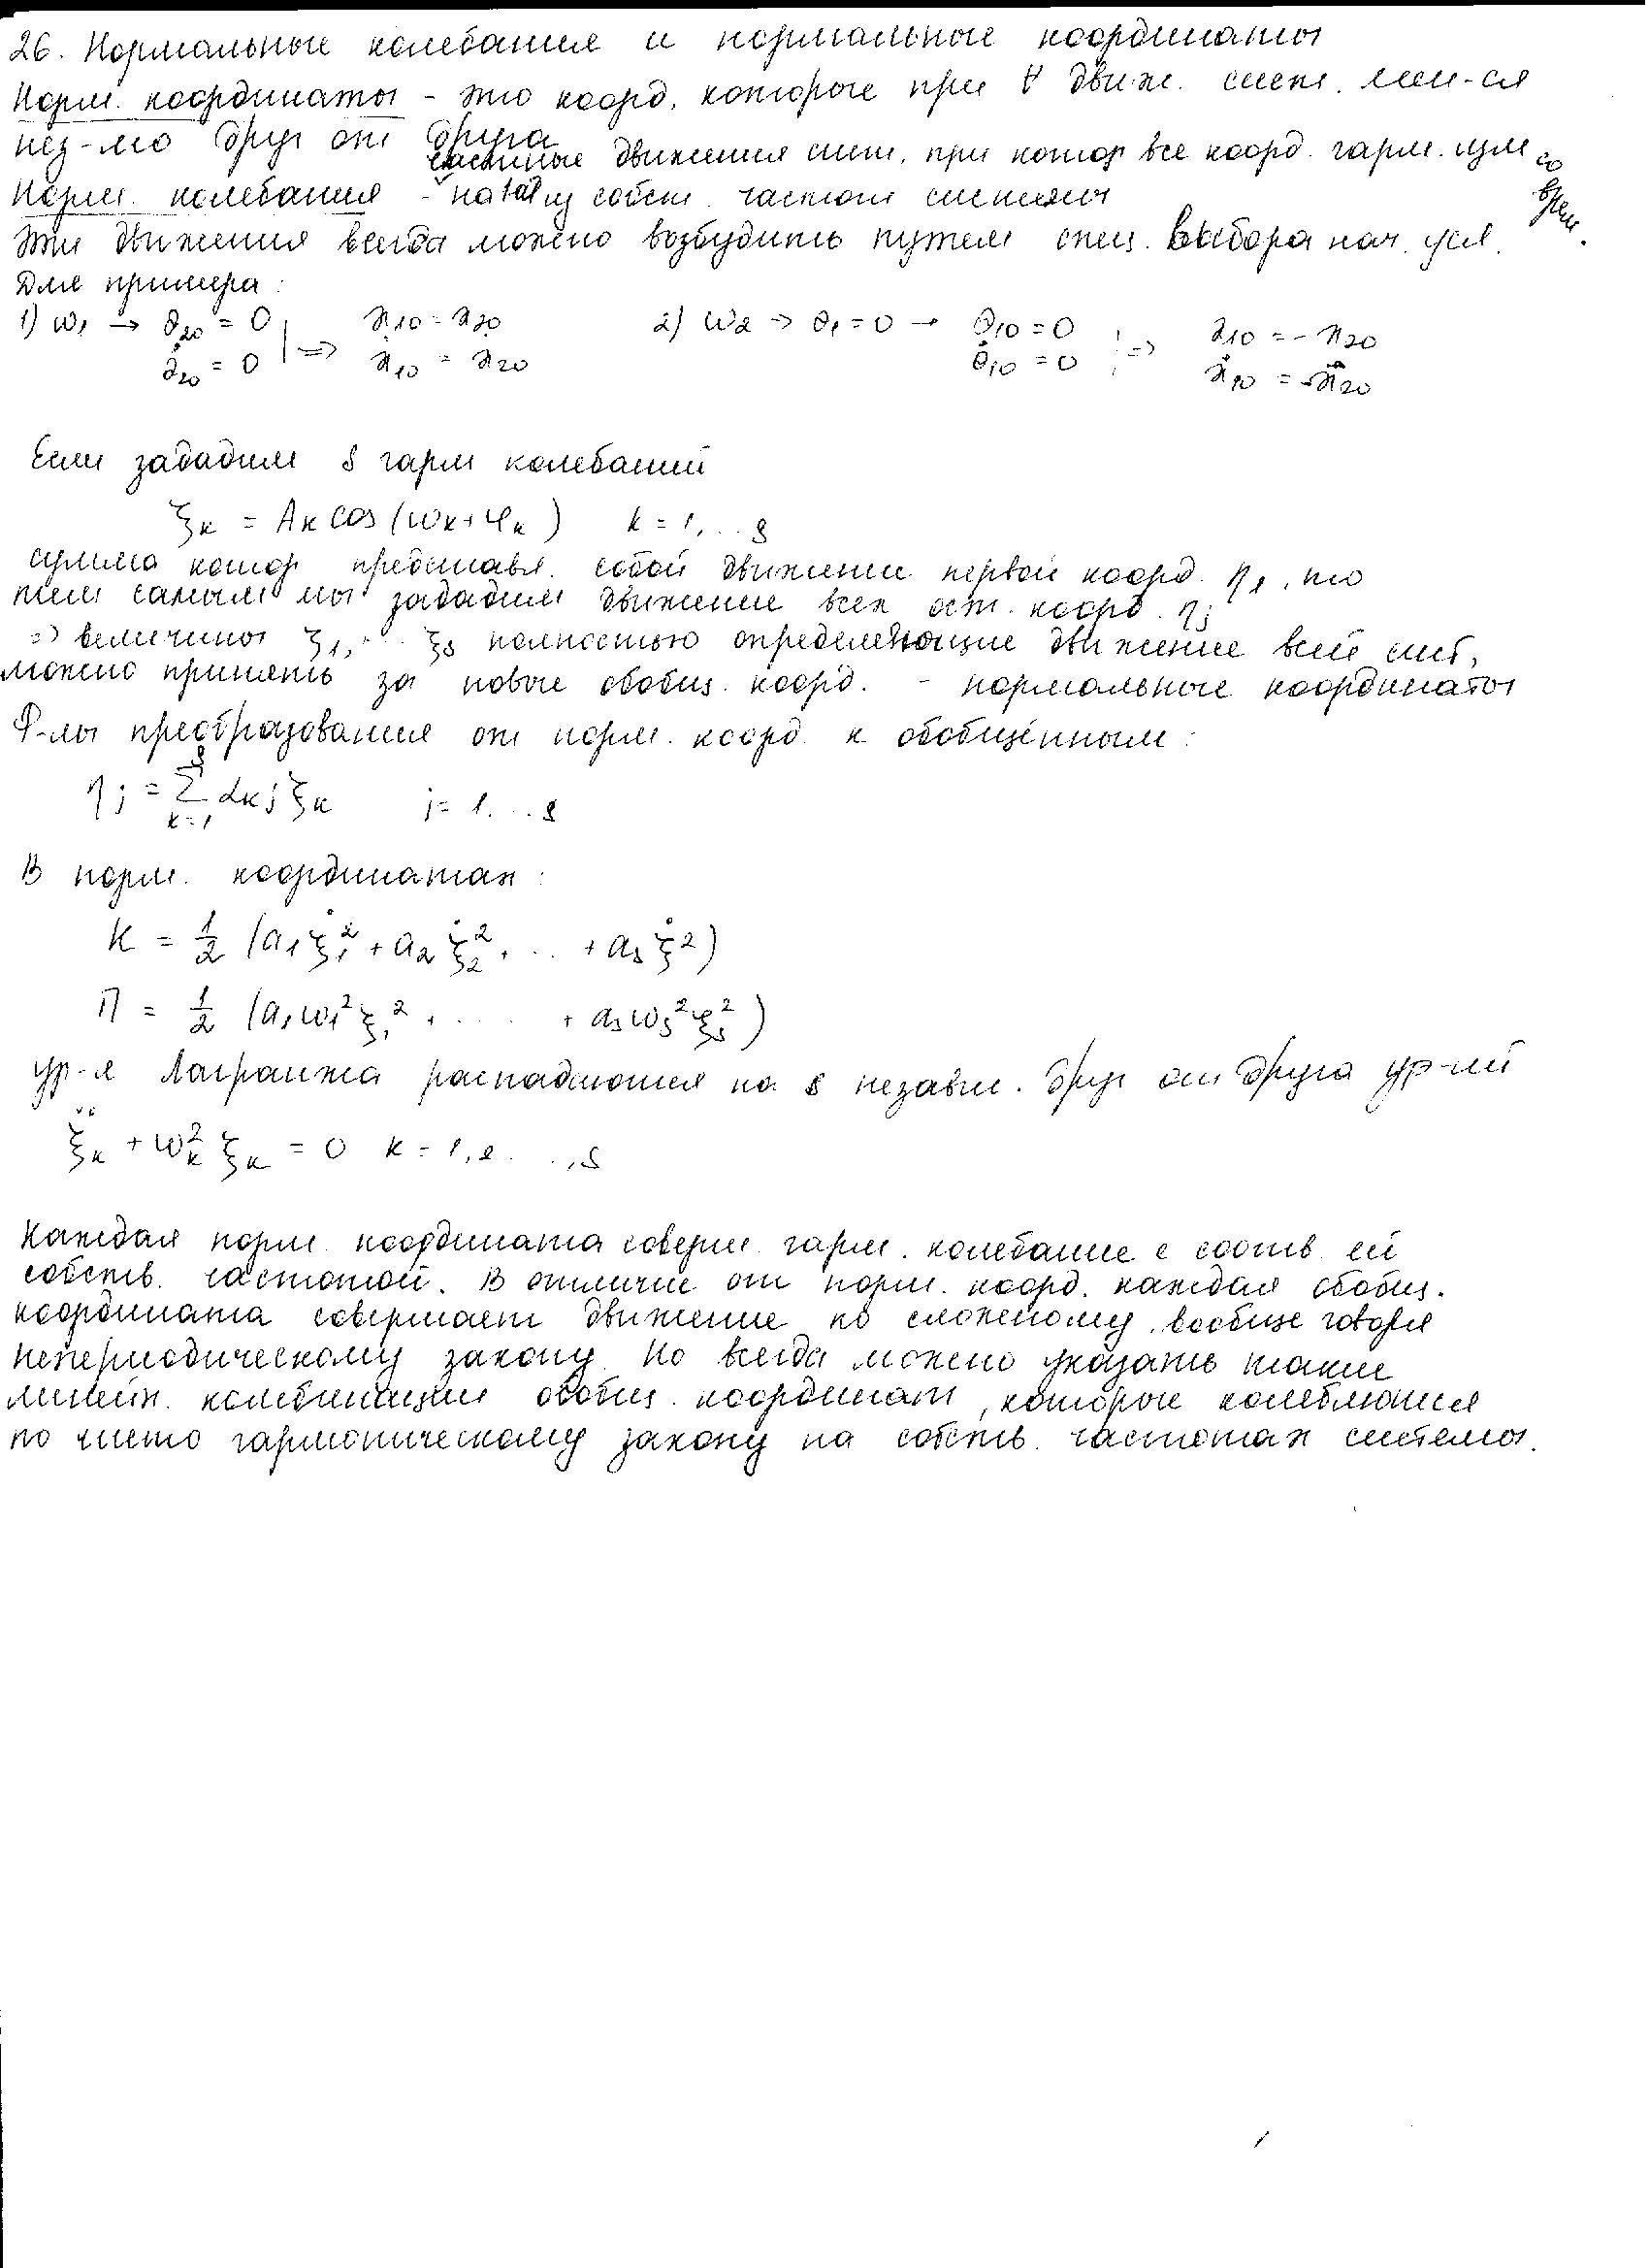 26. Нормальные колебания и нормальные координаты
Норм. координаты - это коорд. которые при ∀ движ. сист. мен-ся
нез-мо друг от друга
частные движения сист. при котор все коорд. гарм. изм со врем.
Норм. колебания - на ∀ из собст. частот системы
Эти движения всегда можно возбудить путем спец. выбора нач. усл.
Для примера:
1) ω₁ → θ₂₀ = 0 | => x₁₀ = x₂₀ 2) ω₂ → θ₁ = 0 → θ₁₀ = 0 | => x₁₀ = - x₂₀
θ̇₂₀ = 0 ẋ₁₀ = ẋ₂₀ θ̇₁₀ = 0 ẋ₁₀ = -ẋ₂₀
Если зададим s гарм колебаний
ξₖ = Aₖ cos (ωₖ + φₖ) k = 1, .. s
сумма котор представл. собой движение первой коорд. η₁, то
тем самым мы зададим движение всех ост. коорд. ηⱼ
=> величины ξ₁, ... ξs полностью определяющие движение всей сист,
можно принять за новые обобщ. коорд. - нормальные координаты
Ф-лы преобразования от норм. коорд. к обобщённым:
ηⱼ = Σ αₖⱼ ξₖ j = 1. .. s
s
k=1
В норм. координатах:
K = 1/2 (a₁ ξ̇₁² + a₂ ξ̇₂² + .. + as ξ̇²)
П = 1/2 (a₁ω₁² ξ₁² + .... + asωs² ξs²)
ур-я Лагранжа распадаются на s независ. друг от друга ур-ий
ξ̈ₖ + ωₖ² ξₖ = 0 k = 1,2. ..,s
Каждая норм. координата соверш. гарм. колебание с соотв. ей
собств. частотой. В отличие от норм. коорд. каждая обобщ.
координата совершает движение по сложному, вообще говоря
непериодическому закону. Но всегда можно указать такие
линейн. комбинации обобщ. координат, которые колеблются
по чисто гармоническому закону на собств. частотах системы.